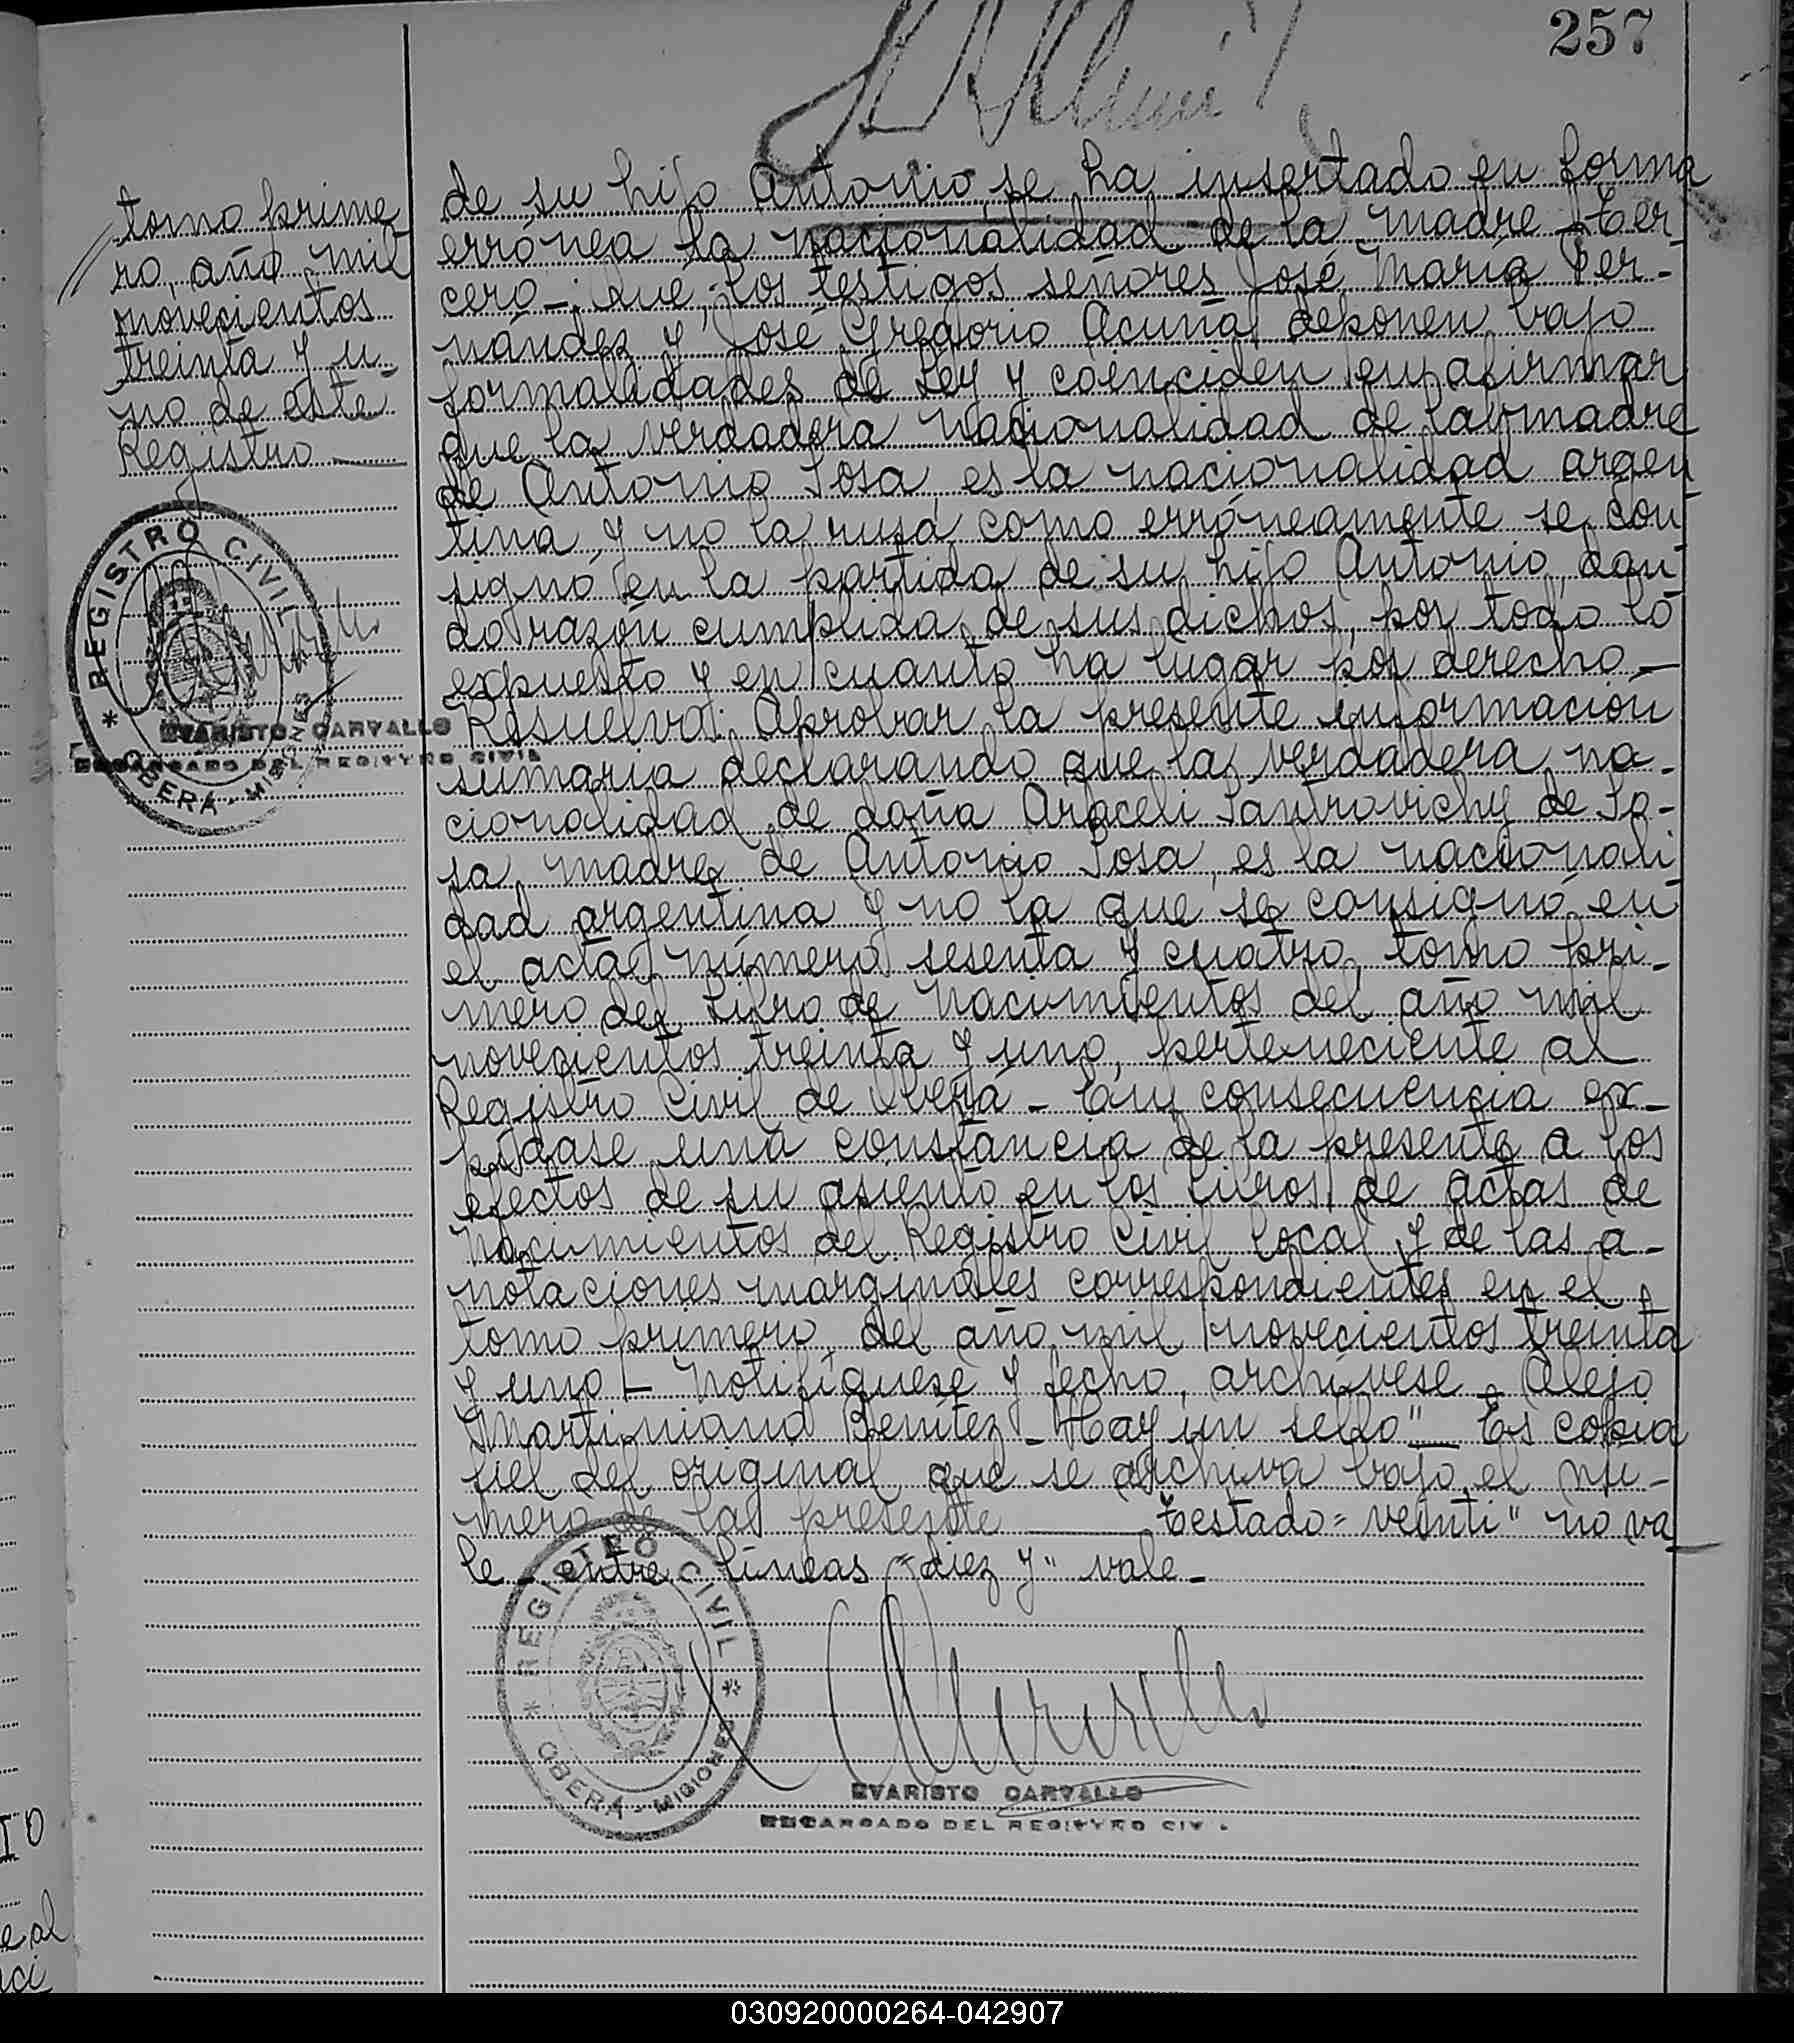 257
tomo prime
ro, año mil
novecientos
treinta y u-
no de este
Registro
REGISTRO CIVIL
OBERA - MISIONES
EVARISTO CARVALLO
ENCARGADO DEL REGISTRO CIVIL
de su hijo Antonio, se ha insertado en forma
errónea la nacionalidad de la madre - Ter
cero -: Que, los testigos señores José María Fer-
nández y José Gregorio Acuña, deponen bajo
formalidades de Ley y coinciden en afirmar
que la verdadera nacionalidad de la madre
de Antonio Sosa, es la nacionalidad argen
tina y no la rusa, como erróneamente se con
signó en la partida de su hijo Antonio, dan
do razón cumplida de sus dichos, por todo lo
expuesto y en cuanto ha lugar por derecho -
Resuelvo: Aprobar la presente información
sumaria declarando que la verdadera na-
cionalidad de doña Araceli Santrovichy de So-
sa, madre de Antonio Sosa, es la nacionali
dad argentina y no la que se consignó en
el acta número sesenta y cuatro, tomo pri-
mero del Libro de Nacimientos del año mil
novecientos treinta y uno, perteneciente al
Registro Civil de Oberá - En consecuencia ex-
pídase una constancia de la presente a los
efectos de su asiento en los libros de actas de
Nacimientos del Registro Civil local y de las a-
notaciones marginales correspondientes en el
tomo primero del año mil novecientos treinta
y uno - Notifíquese y fecho, archívese - Alejo
Martiniano Benítez - Hay un sello" - Es copia
fiel del original que se archiva bajo el nú-
mero de la presente Testado = veinti" no va
le - entre líneas "diez y" vale -
REGISTRO CIVIL
OBERA - MISIONES
EVARISTO CARVALLO
ENCARGADO DEL REGISTRO CIV
030920000264-042907